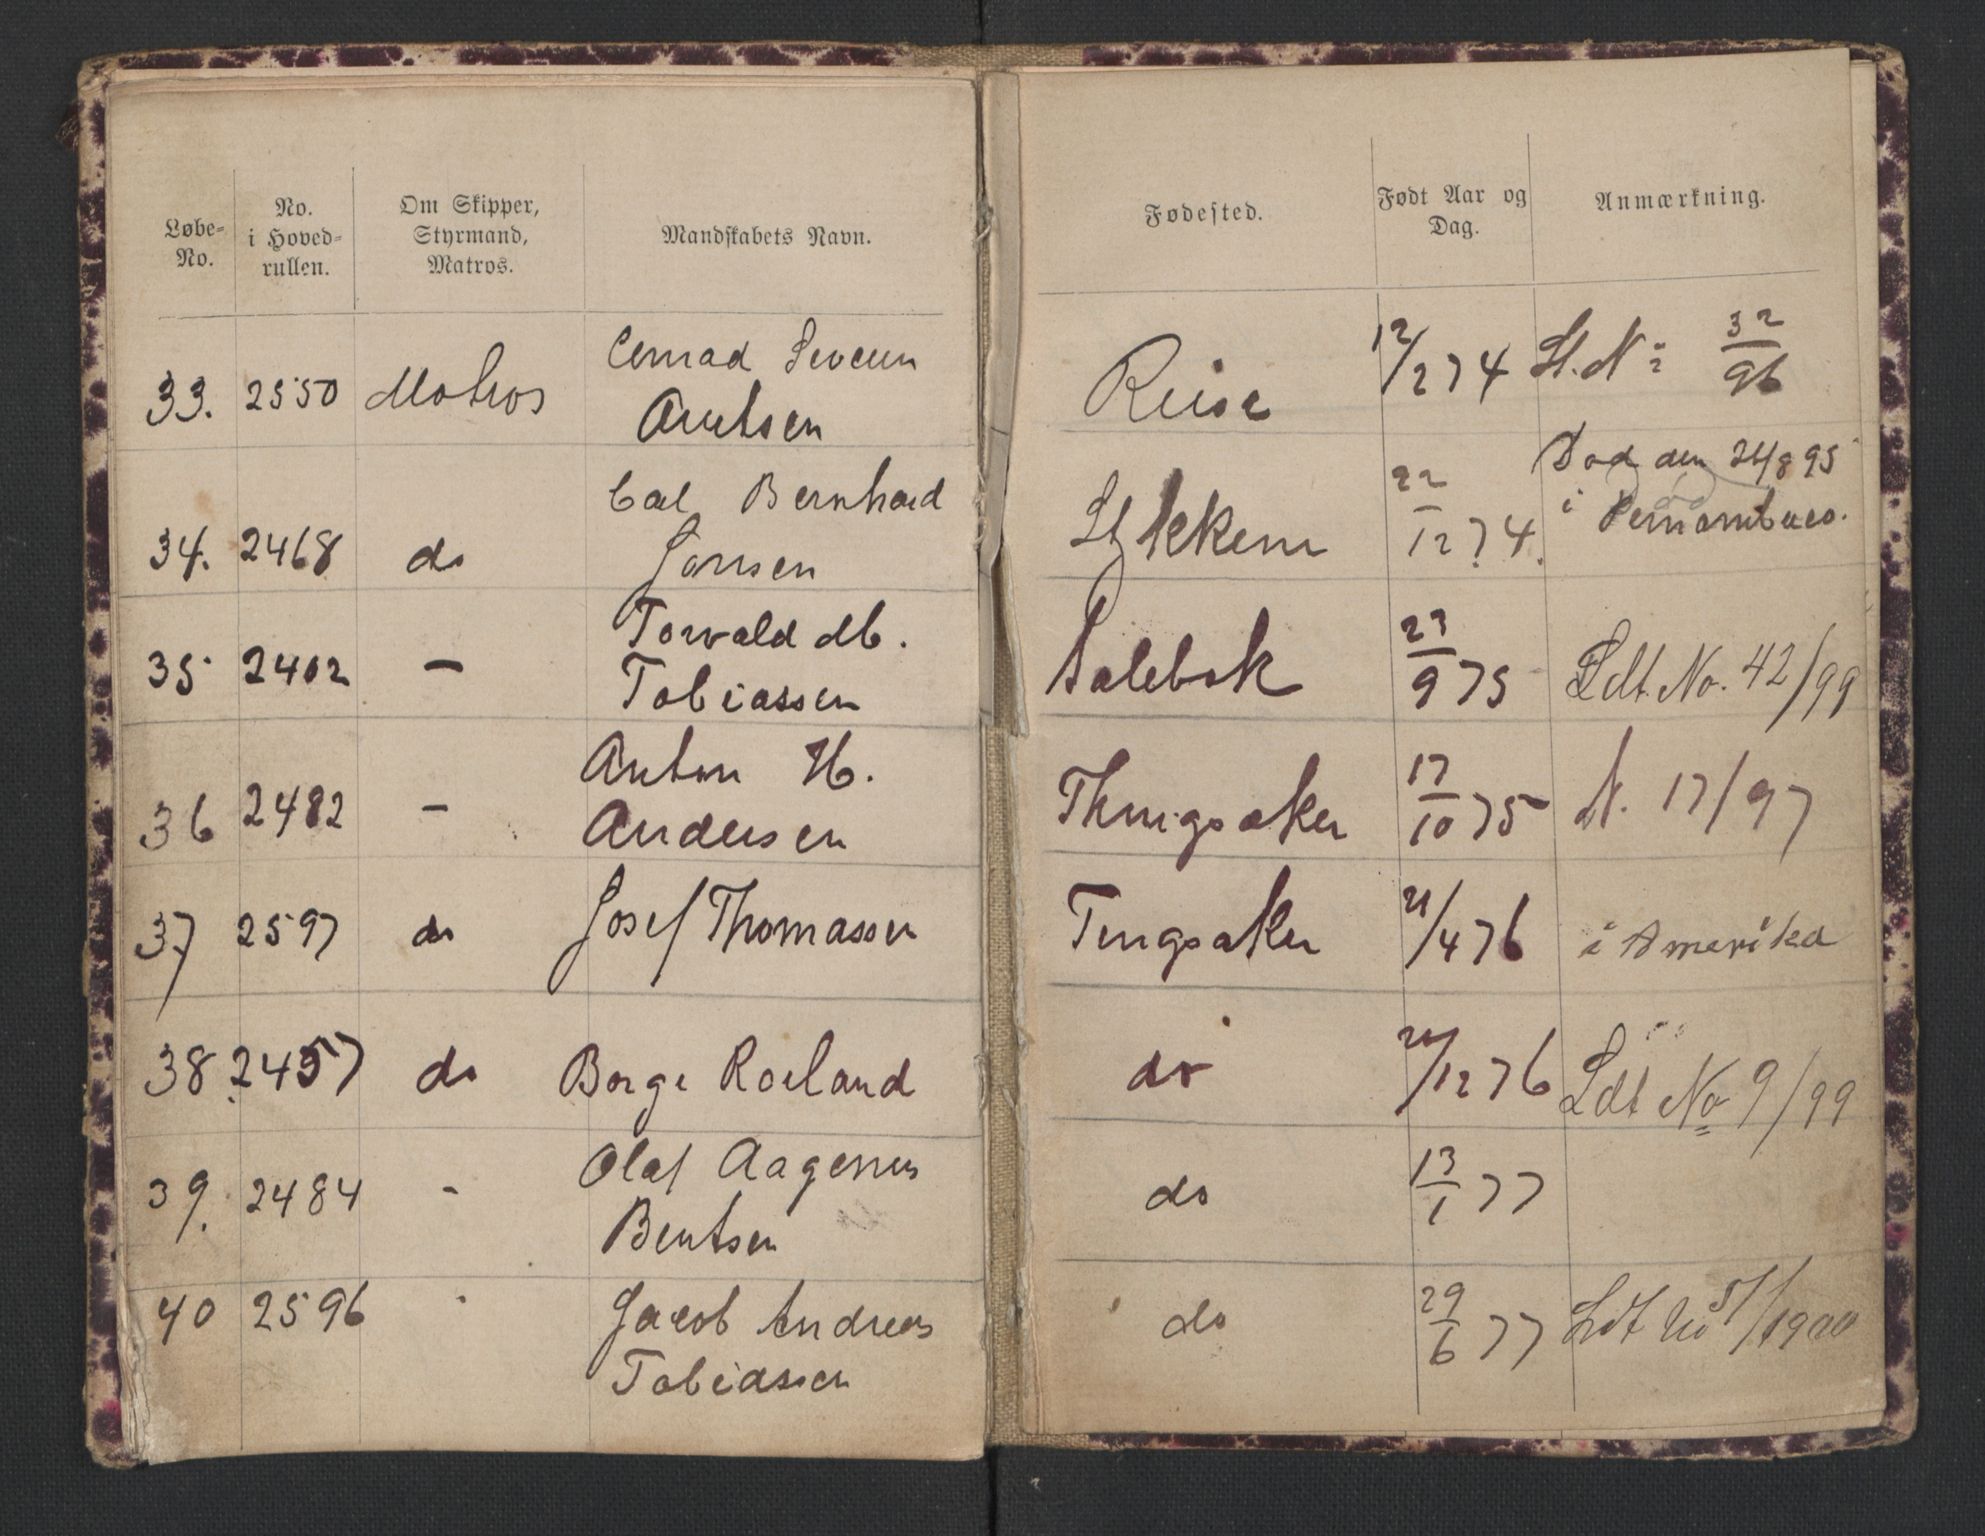 Løbe-No.
No. i Hoved-rullen.
Om Skipper, Styrmand, Matros.
Mandskabets Navn.
Fødested.
Født Aar og Dag.
Anmærkning.
33. 2550 Matros Conrad Severin
Arntsen
Riisr 12/2 74 Lt. N: 32/96
34. 2468 do Carl Bernhard
Jonsen
22/12 74. Død den 24/8 95
i Pernambuco.
35 2402 — Torvald M.
Tobiassen
Salebok 23/9 75 Ldt. No. 42/99
36 2482 — Anton H.
Andersen
Thingsaker 17/10 75 N. 17/97
37 2597 do Josef Thomassen
Tingsaker 21/4 76 i Amerika
38. 2457 do Borge Roeland
do /12 76 Ldt No 9/99
39. 2484 - Olaf Aagenus
Bentsen
do 13/1 77
40 2596 Jacob Andreas
Tobiassen
do 29/6 77 Ldt No 51/1900